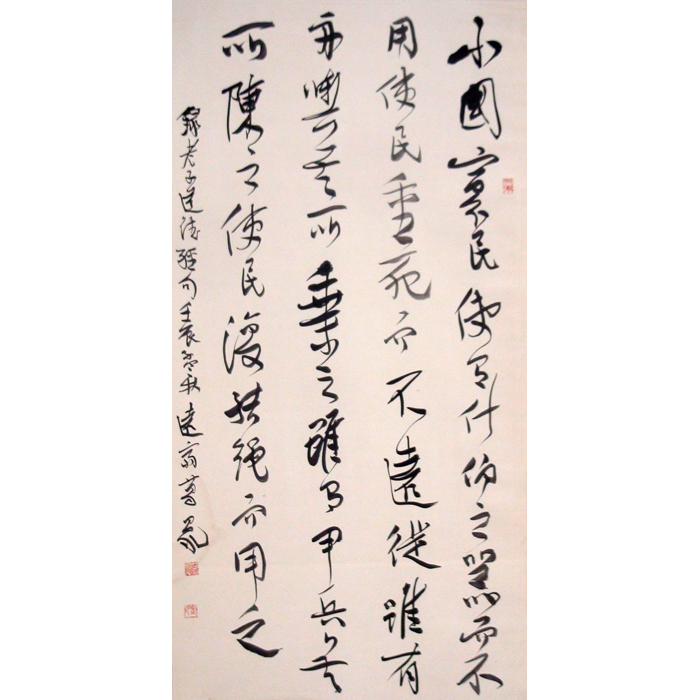 小國寡民使有什伯之器而不
用使民重死而不遠徙雖有
舟輿无所乘之雖有甲兵无
所陳之使民復結繩而用之
錄老子道德經句壬辰秋遠翁